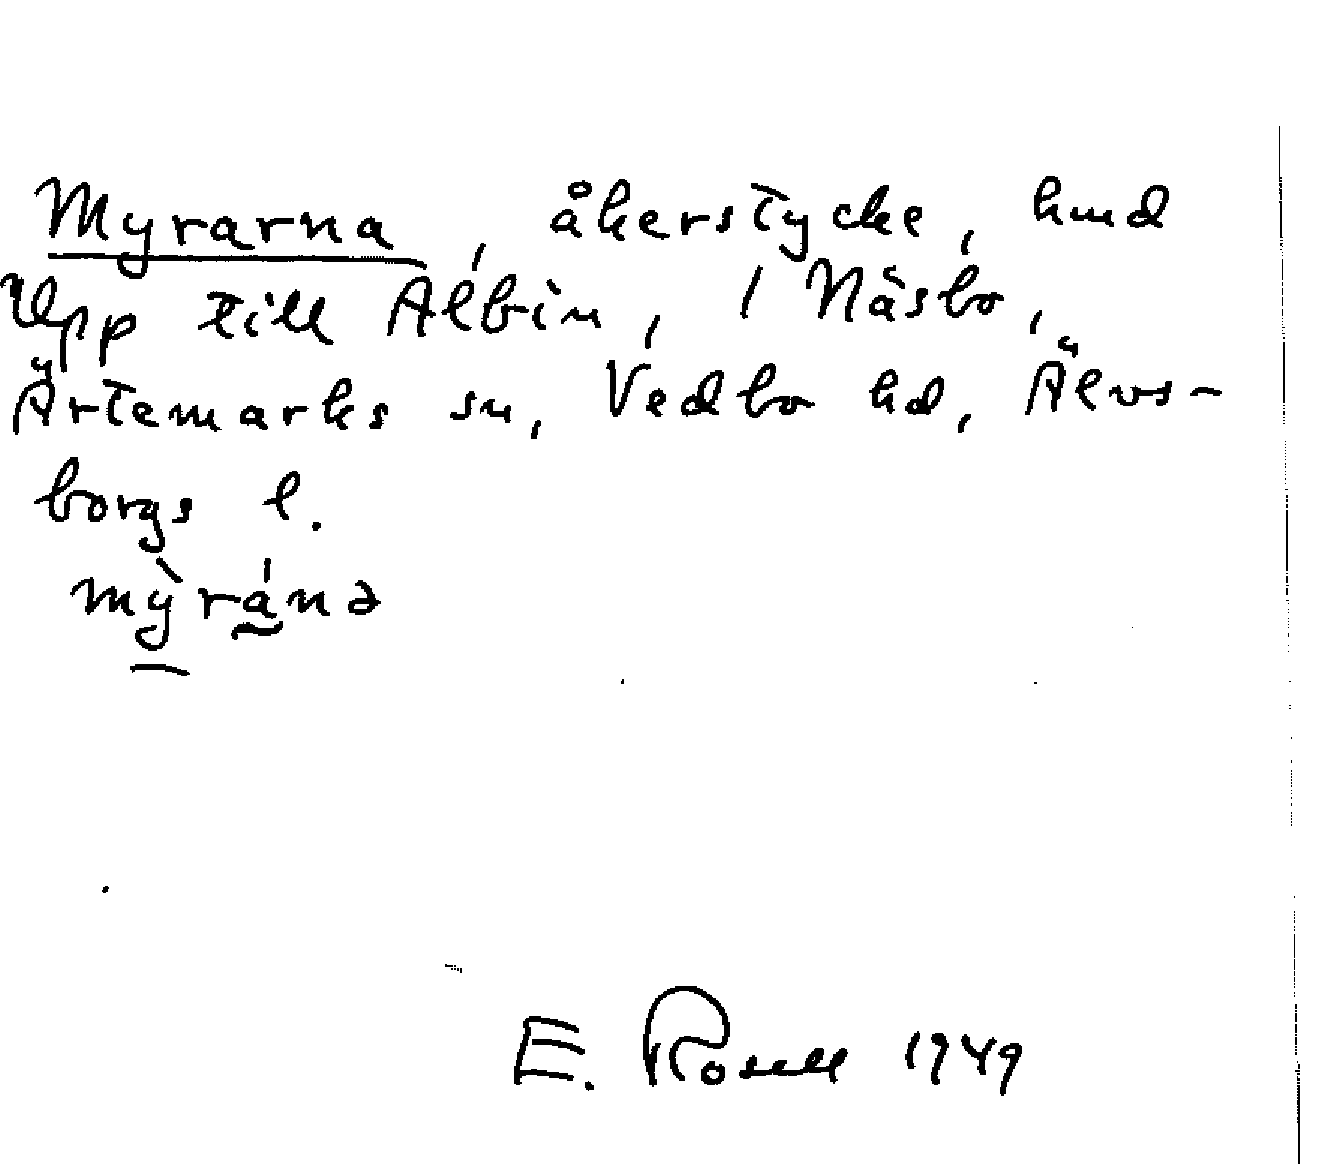 Myrarna, åkerstycke, hmd
Upp till Albin, / Näsbo,
Ärtemarks sn, Vedbo hd, Älvs-
borgs l.
mỳránə
E. Rosell 1949